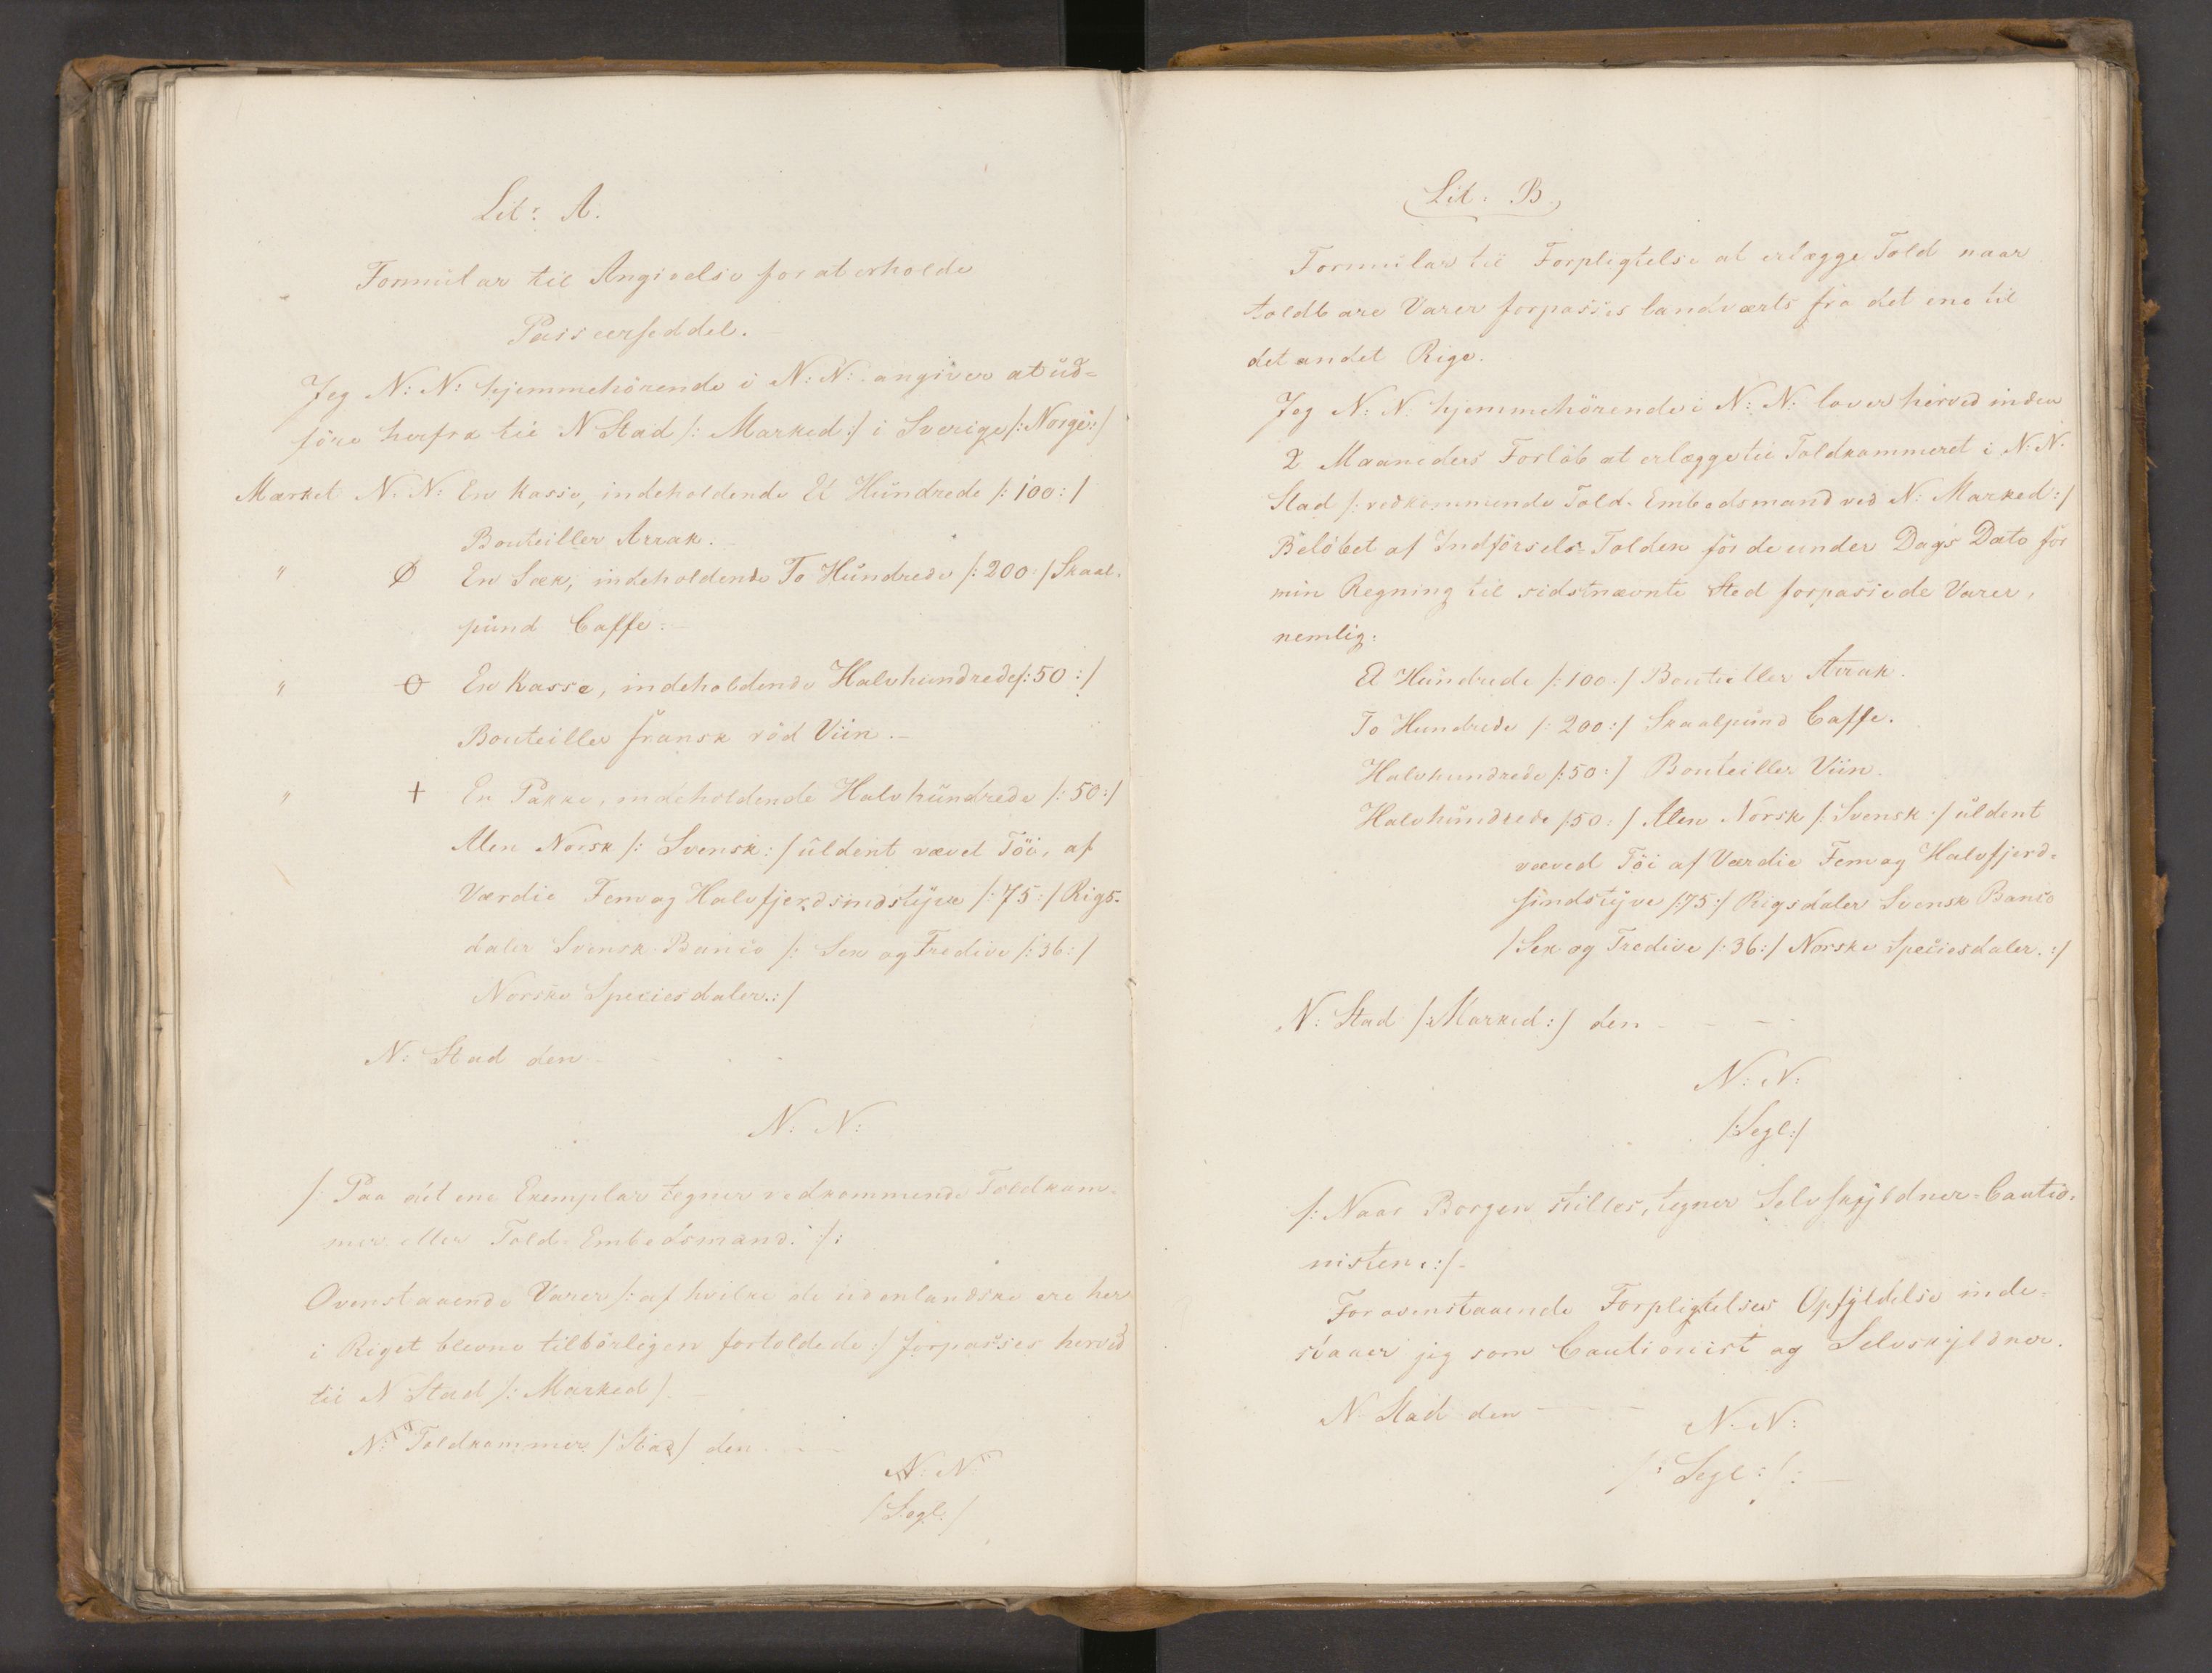 Litr A.
Formular til Angivelse for at erholde
Passeerseddel.
Jeg N: N: hjemmehörende i N: N: angiver at ud-
före herfra til N Stad /: Marked :/ i Sverige /: Norge :/
Mærket N. N: En Kasse, indeholdende Et Hundrede /: 100 :/
Bouteiller Arrak.
" Ø En Sæk, indeholdende To Hundrede /: 200 :/ Skaal-
pund Caffe.
" O En Kasse, indeholdende Halvhundrede /: 50 :/
Bouteiller fransk röd Viin.
" + En Pakke, indeholdende Halvhundrede /: 50 :/
Alen Norsk /: Svensk :/ uldent vævet Töi, af
Værdie Fem og Halvfjerdsindstyve /: 75 :/ Rigs-
daler Svensk Banco /: Sex og Tredive /: 36 :/
Norske Speciesdaler. :/
N: Stad den - - - -
N: N:
/: Paa det ene Exemplar tegner vedkommende Toldkam-
mer eller Told-Embedsmand. :/:
Ovenstaaende Varer /: af hvilke de udenlandske ere her
i Riget blevne tilbörligen fortoldede :/ forpasses herved
til N Stad /: Marked /.
N: Toldkammer / Stad / den - - -
N: N:
/ Segl: /
Lit: B.
Formular til Forpligtelse at erlægge Told naar
toldbare Varer forpasses landværts fra det ene til
det andet Rige.
Jeg N: N. hjemmehörende i N: N. lover herved inden
2 Maaneders Forlöb at erlægge til Toldkammeret i N: N.
Stad /: vedkommende Told-Embedsmand ved N: Marked :/
Belöbet af Indförsels-Tolden for de under Dags Dato for
min Regning til sidstnævnte Sted forpassede Varer,
nemlig:
Et Hundrede /: 100 :/ Bouteiller Arrak.
To Hundrede /: 200 :/ Skaalpund Caffe.
Halvhundrede /: 50 :/ Bouteiller Viin.
Halvhundrede /: 50 :/ Alen Norsk /: Svensk :/ uldent
væved Töi af Værdie Fem og Halvfjerd-
sindstyve /: 75 :/ Rigsdaler Svensk Banco
/ Sex og Tredive /: 36 :/ Norske Speciesdaler. :/
N: Stad /: Marked :/ den - - - -
N: N:
/: Segl :/
/: Naar Borgen stilles, tegner Selvskyldner-Cautio-
nisten :/-
For ovenstaaende Forpligtelses Opfyldelse inde-
staaer jeg som Cautionist og Selvskyldner.
N. Stad den - - -
N. N:
/: Segl :/: -